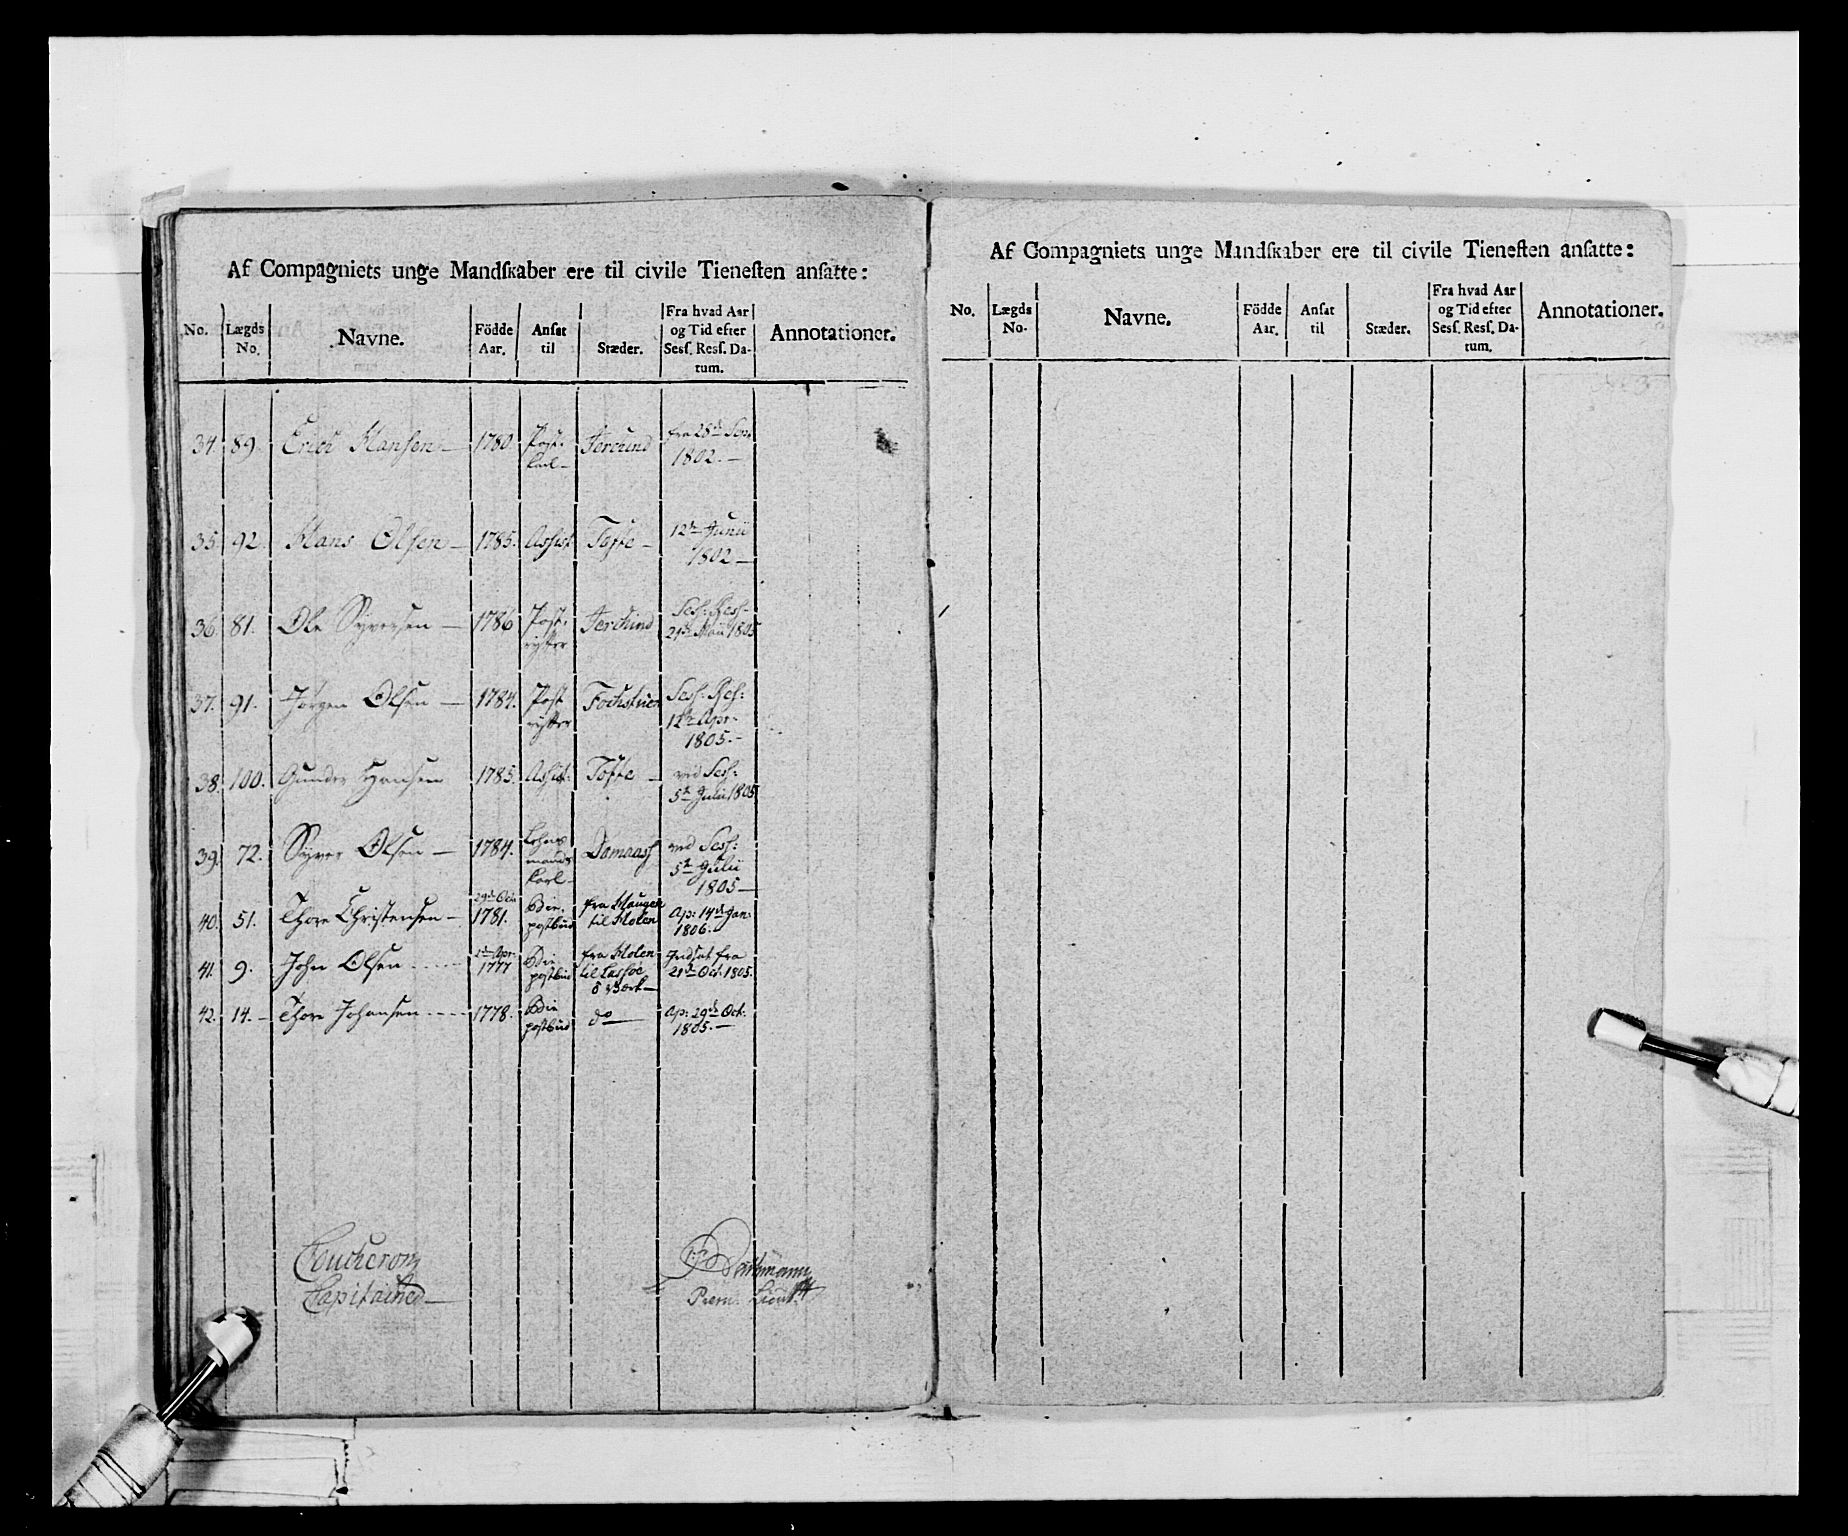 Af Compagniets unge Mandskaber ere til civile Tienesten ansatte:
No. Lægds No. Navne. Födde Aar. Ansat til Stæder. Fra hvad Aar og Tid efter Sess. Ress. Datum. Annotationer.
34. 89. Erich Hansen — 1780. Post: karl — Jerckind fra 28de Sep. 1802. —
35. 92. Hans Olsen — 1785. Assist. Tofte — 12te Junii 1802 —
36. 81. Ole Syversen — 1786 Post: rytter Jerckind Sess: Ress: 21de Maii 1805
37. 91. Jørgen Olsen — 1784. Post rytter Fochstuen Sess: Res: 12te Apr. 1805. –
38. 100. Gunder Hansen 1785. Assist: Tofte — ved Sess: 5te Julii 1805
39. 72. Syver Olsen — 1784. Lehns mands karl — Domaas ved Sess: 5te Julii 1805 —
40. 51. Thore Christensen — 29de Oct. 1781. Bie: postbud fra Haugen til Molen Ap: 14de Jan: 1806. –
41. 9. John Olsen .... Apr. 1777 Bie postbud fra Molen til Lessøe Værk — Indsat fra 21de Oct. 1805.
42. 14. – Thore Johansen ... 1778. Bie postbud do — Ap: 29de Oct. 1805. —
Coucheron
Capitaine —
Prem. Lieut.
Af Compagniets unge Mandskaber ere til civile Tienesten ansatte:
No. Lægds No. Navne. Födde Aar. Ansat til Stæder. Fra hvad Aar og Tid efter Sess. Ress. Datum. Annotationer.